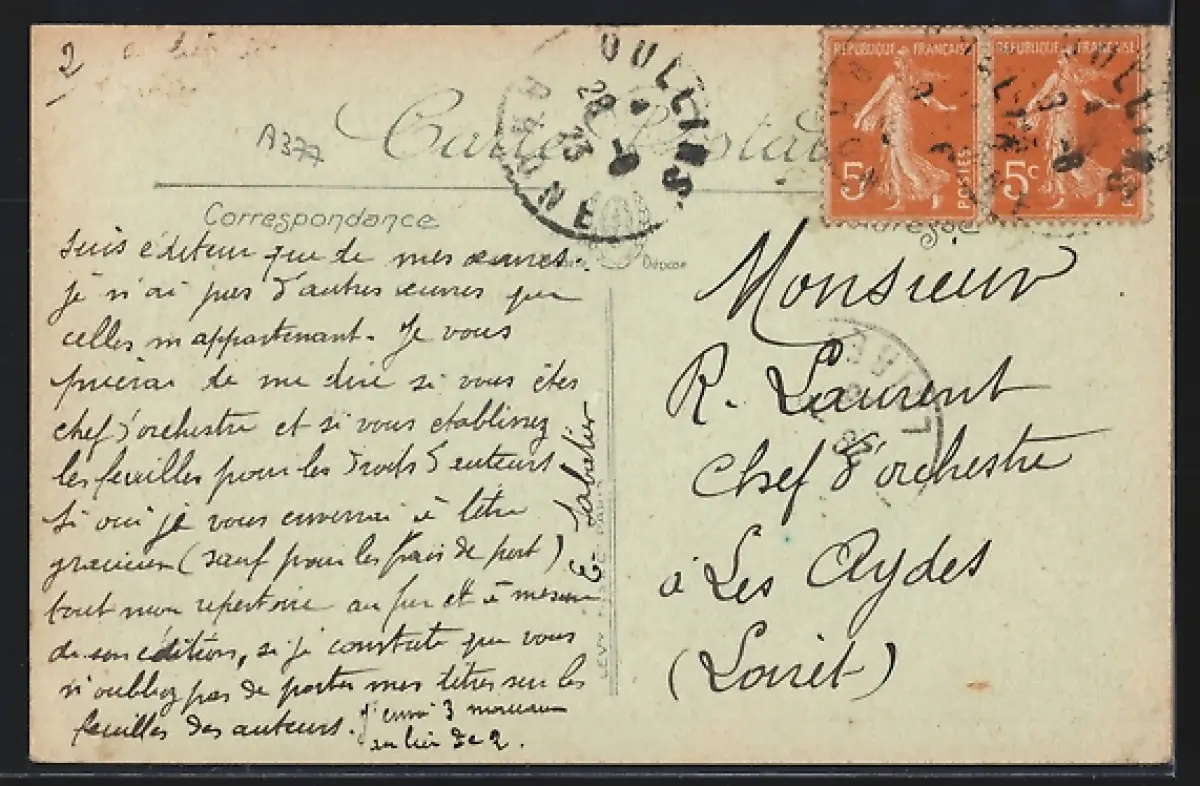 2
A377
Carte Postale
OULLINS
RHONE
28 -8
13
REPUBLIQUE FRANÇAISE
5
POSTES
REPUBLIQUE FRANÇAISE
5c
OULLINS
Correspondance
Adresse
Déposé
suis éditeur que de mes œuvres.
je n'ai pas d'autres œuvres que
celles m'appartenant. Je vous
prierai de me dire si vous êtes
chef d'orchestre et si vous établissez
les feuilles pour les droits d'auteurs
Si oui je vous enverrai à titre
gracieux (sauf pour les frais de port)
tout mon repertoire au fur et à mesure
de son édition, si je constate que vous
n'oubliez pas de porter mes titres sur les
feuilles des auteurs. J'envoi 3 morceaux
au lieu de 2.
E. Sabatier
LEVY
Monsieur
R. Laurent
Chef d'orchestre
à Les Aydes
(Loiret)